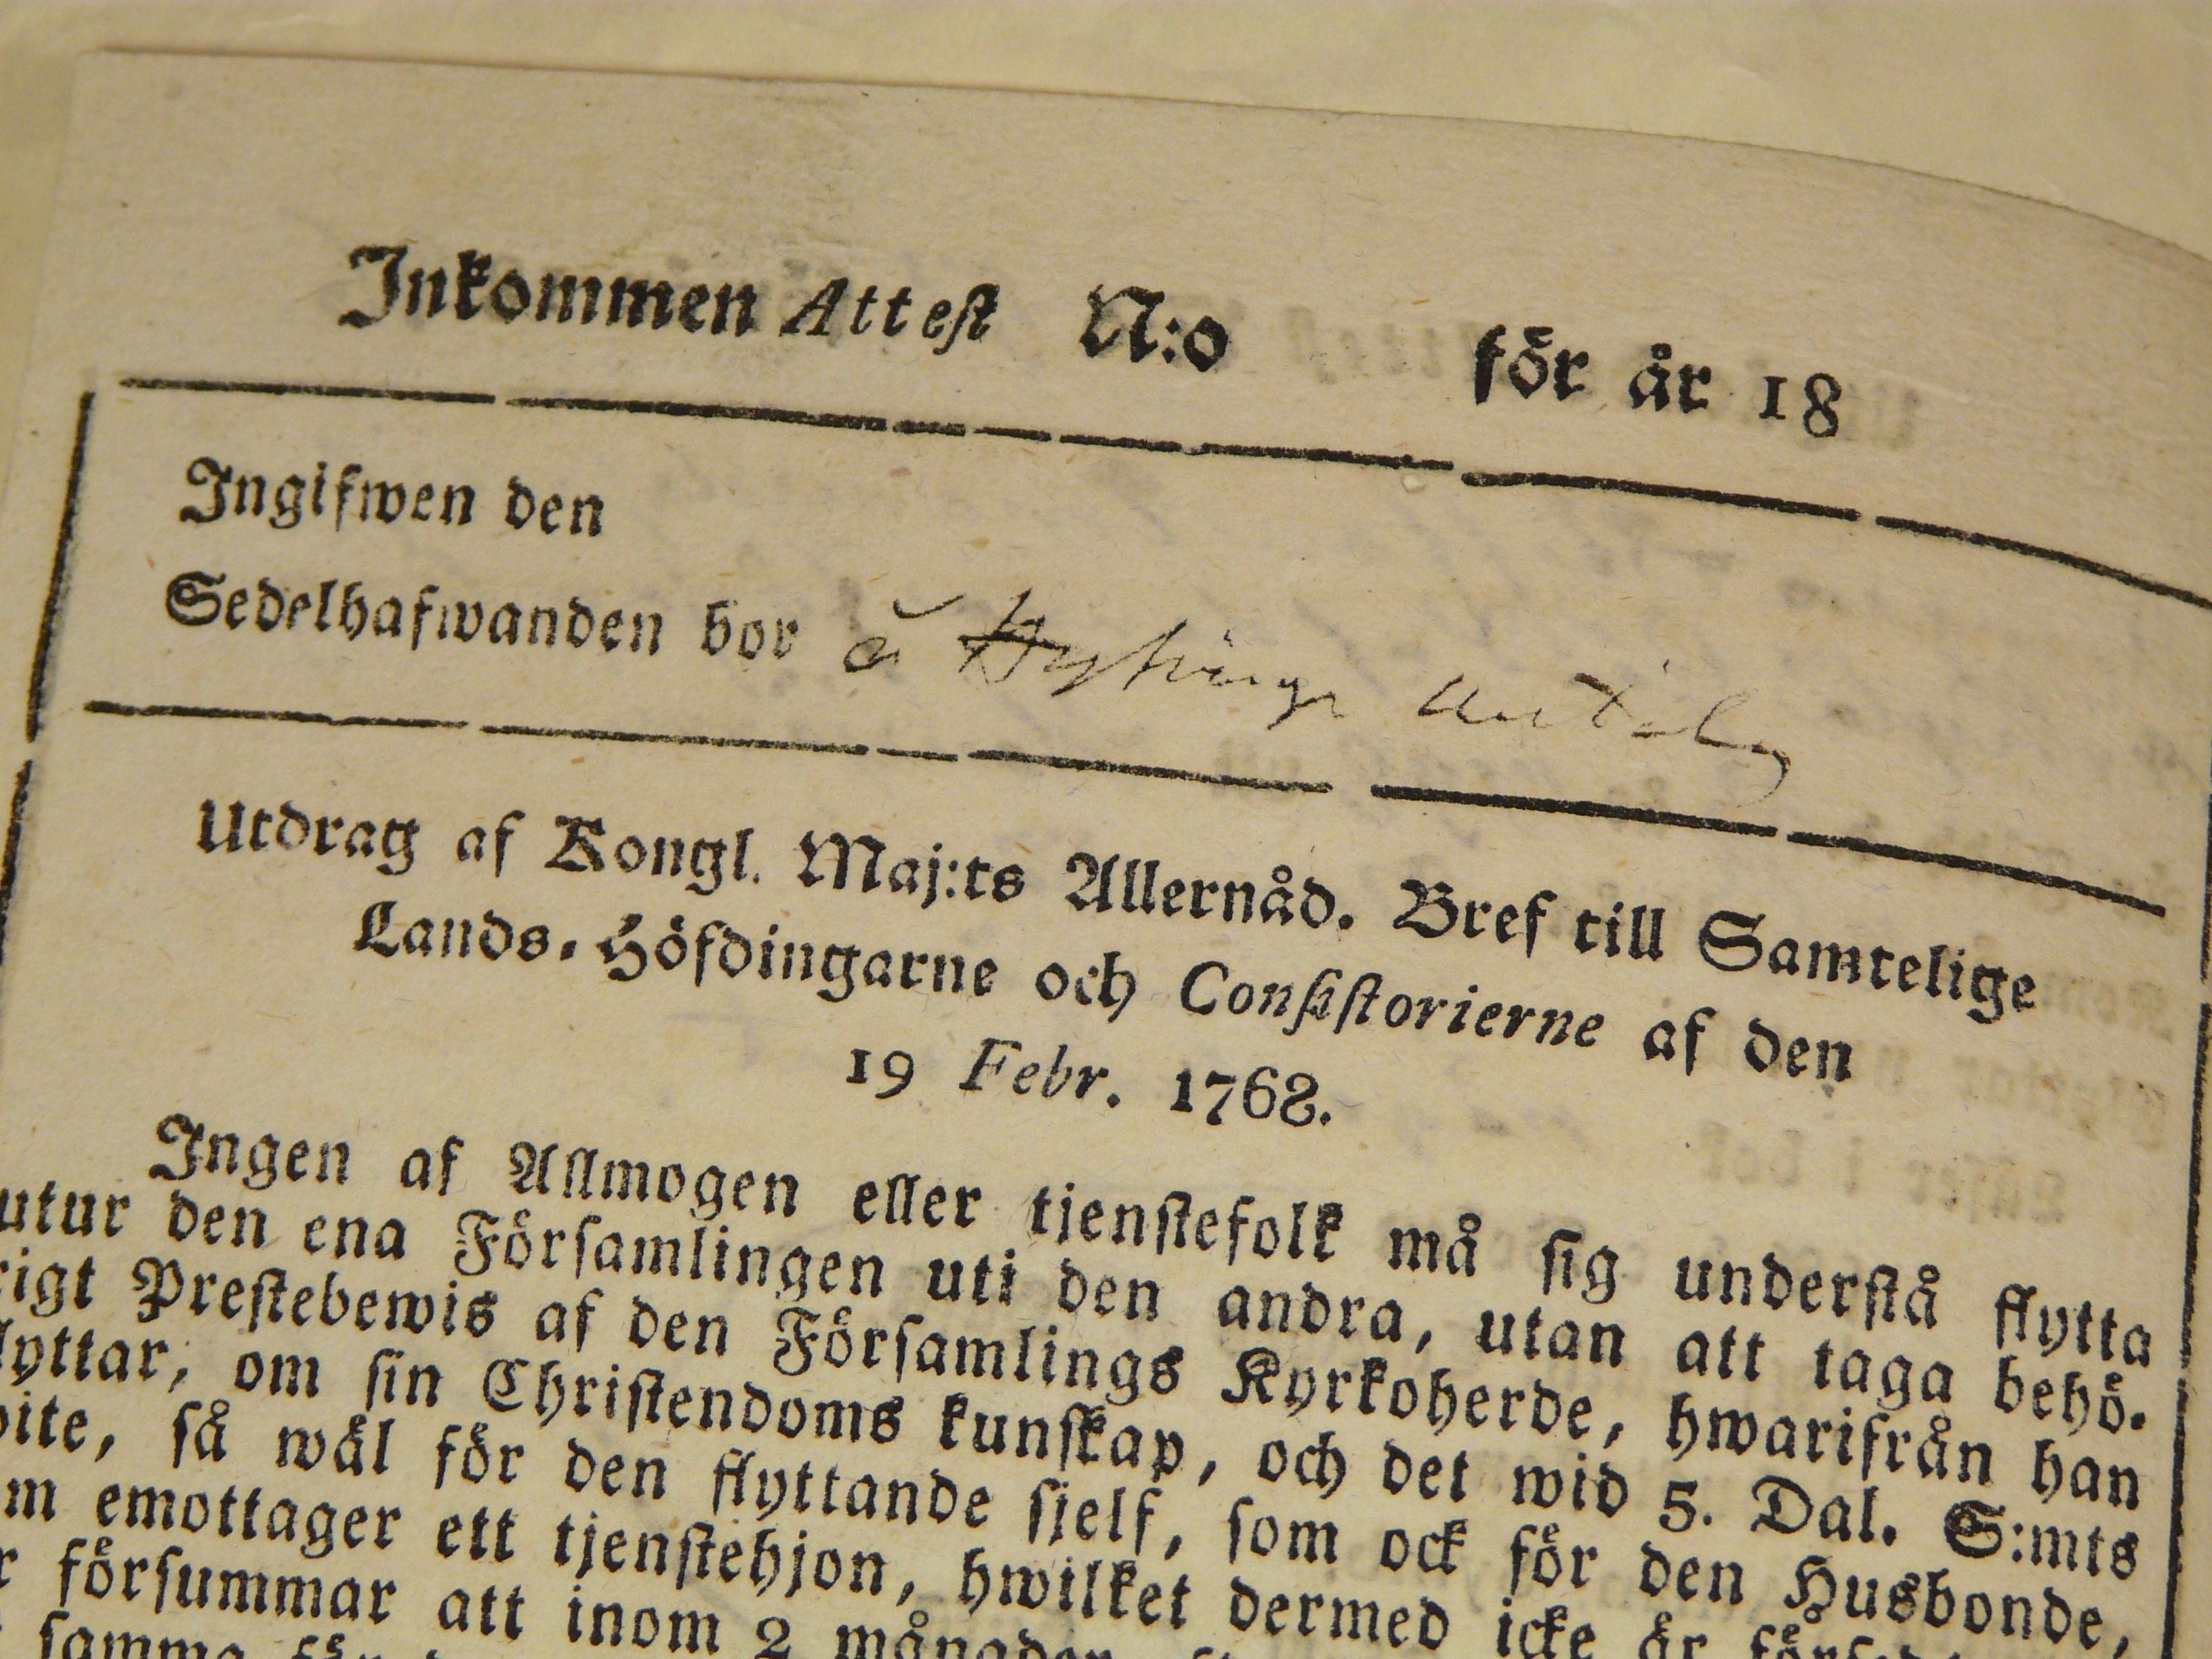 Inkommen Attest N:o för år 18
Ingifwen den
Sedelhafwanden bor å
Utdrag af Kongl. Maj:ts Allernåd. Bref till Samtelige
Lands-Höfdingarne och Consistorierne af den
19 Febr. 1768.
Ingen af Allmogen eller tjenstefolk må sig understå flytta
utur den ena Församlingen uti den andra, utan att taga behö-
rigt Prestebewis af den Församlings Kyrkoherde, hwarifrån han
flyttar, om sin Christendoms kunskap, och det wid 5. Dal. S:mts
wite, så wäl för den flyttande sjelf, som ock för den Husbonde,
m emottager ett tjenstehjon, hwilket dermed icke är
r försummar att inom 2 månader
samma för